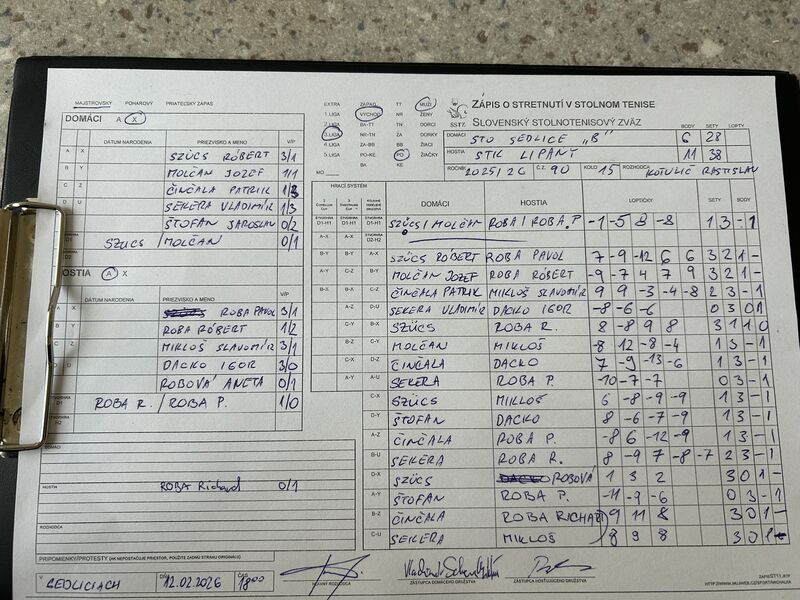 MAJSTROVSKÝ POHAROVÝ PRIATEĽSKÝ ZÁPAS
DOMÁCI A X
DÁTUM NARODENIA PRIEZVISKO A MENO V/P
A X SZÜCS RÓBERT 3/1
B Y MOLČAN JOZEF 1/1
C Z ČINČALA PATRIK 1/3
D U SEKERA VLADIMÍR 1/3
ŠTOFAN JAROSLAV 0/2
SZÜCS / MOLČAN 0/1
HOSTIA A X
DÁTUM NARODENIA PRIEZVISKO A MENO V/P
ROBA PAVOL 3/1
ROBA RÓBERT 1/2
MIKLOŠ SLAVOMÍR 3/1
DACKO IGOR 3/0
ROBOVÁ ANETA 0/1
ROBA R. / ROBA P. 1/0
DOMÁCI
HOSTIA ROBA Richard 0/1
ROZHODCA
EXTRA ZÁPAD TT MUŽI
1.LIGA VÝCHOD NR ŽENY
2.LIGA BA-TT TN DORCI
3.LIGA NR-TN ZA DORKY
4.LIGA ZA-BB BB ŽIACI
5.LIGA PO-KE PO ŽIAČKY
MO BA KE
SSTZ
ZÁPIS O STRETNUTÍ V STOLNOM TENISE
SLOVENSKÝ STOLNOTENISOVÝ ZVÄZ
BODY SETY LOPTY
DOMÁCI STO SEDLICE „B" 6 28
HOSTIA STK LIPANY 11 38
ROČNÍK 2025/26 Č.Z. 90 KOLO 15 ROZHODCA KOTULIČ RASTISLAV
HRACÍ SYSTÉM DOMÁCI HOSTIA LOPTIČKY SETY BODY
SZÜCS / MOLČAN ROBA / ROBA P. -1 -5 8 -8 1 3 - 1
B-Y A-X SZÜCS RÓBERT ROBA PAVOL 7 -9 -12 6 6 3 2 1 -
A-Y C-Z B-Y MOLČAN JOZEF ROBA RÓBERT -9 -7 4 7 9 3 2 1 -
B-X B-X C-Z ČINČALA PATRIK MIKLOŠ SLAVOMÍR 9 9 -3 -4 -8 2 3 - 1
A-Z D-U SEKERA VLADIMÍR DACKO IGOR -8 -6 -6 0 3 0 1
C-Y B-X SZÜCS ROBA R. 8 -8 9 8 3 1 1 0
B-Z C-Y MOLČAN MIKLOŠ -8 12 -8 -4 1 3 - 1
C-X D-Z ČINČALA DACKO 7 -9 -13 -6 1 3 - 1
A-Y A-U SEKERA ROBA P. -10 -7 -7 0 3 - 1
C-X SZÜCS MIKLOŠ 6 -8 -9 -9 1 3 - 1
D-Y ŠTOFAN DACKO 8 -6 -7 -9 1 3 - 1
A-Z ČINČALA ROBA P. -8 6 -12 -9 1 3 - 1
B-U SEKERA ROBA R. 8 -9 7 -8 -7 2 3 - 1
D-X SZÜCS ROBOVÁ 1 3 2 3 0 1 -
A-Y ŠTOFAN ROBA P. -11 -9 -6 0 3 - 1
B-Z ČINČALA ROBA RICHARD 9 11 8 3 0 1 -
C-U SEKERA MIKLOŠ 8 9 8 3 0 1 -
PRIPOMIENKY/PROTESTY (AK NEPOSTAČUJE PRIESTOR, POUŽITE ZADNÚ STRANU ORIGINÁLU)
V SEDLICIACH DŇA 12.02.2026 ČAS 18 00
HLAVNÝ ROZHODCA ZÁSTUPCA DOMÁCEHO DRUŽSTVA ZÁSTUPCA HOSŤUJÚCEHO DRUŽSTVA
ZAPISST11.RTF